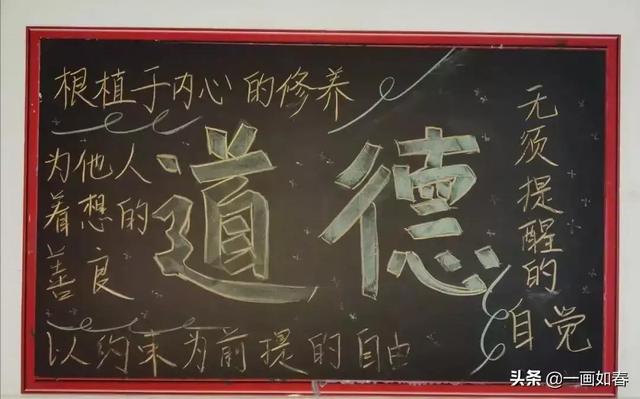 根植于内心的修养
为他人
着想的
善良
道德
无须提醒的
自觉
以约束为前提的自由
头条 @一画如春